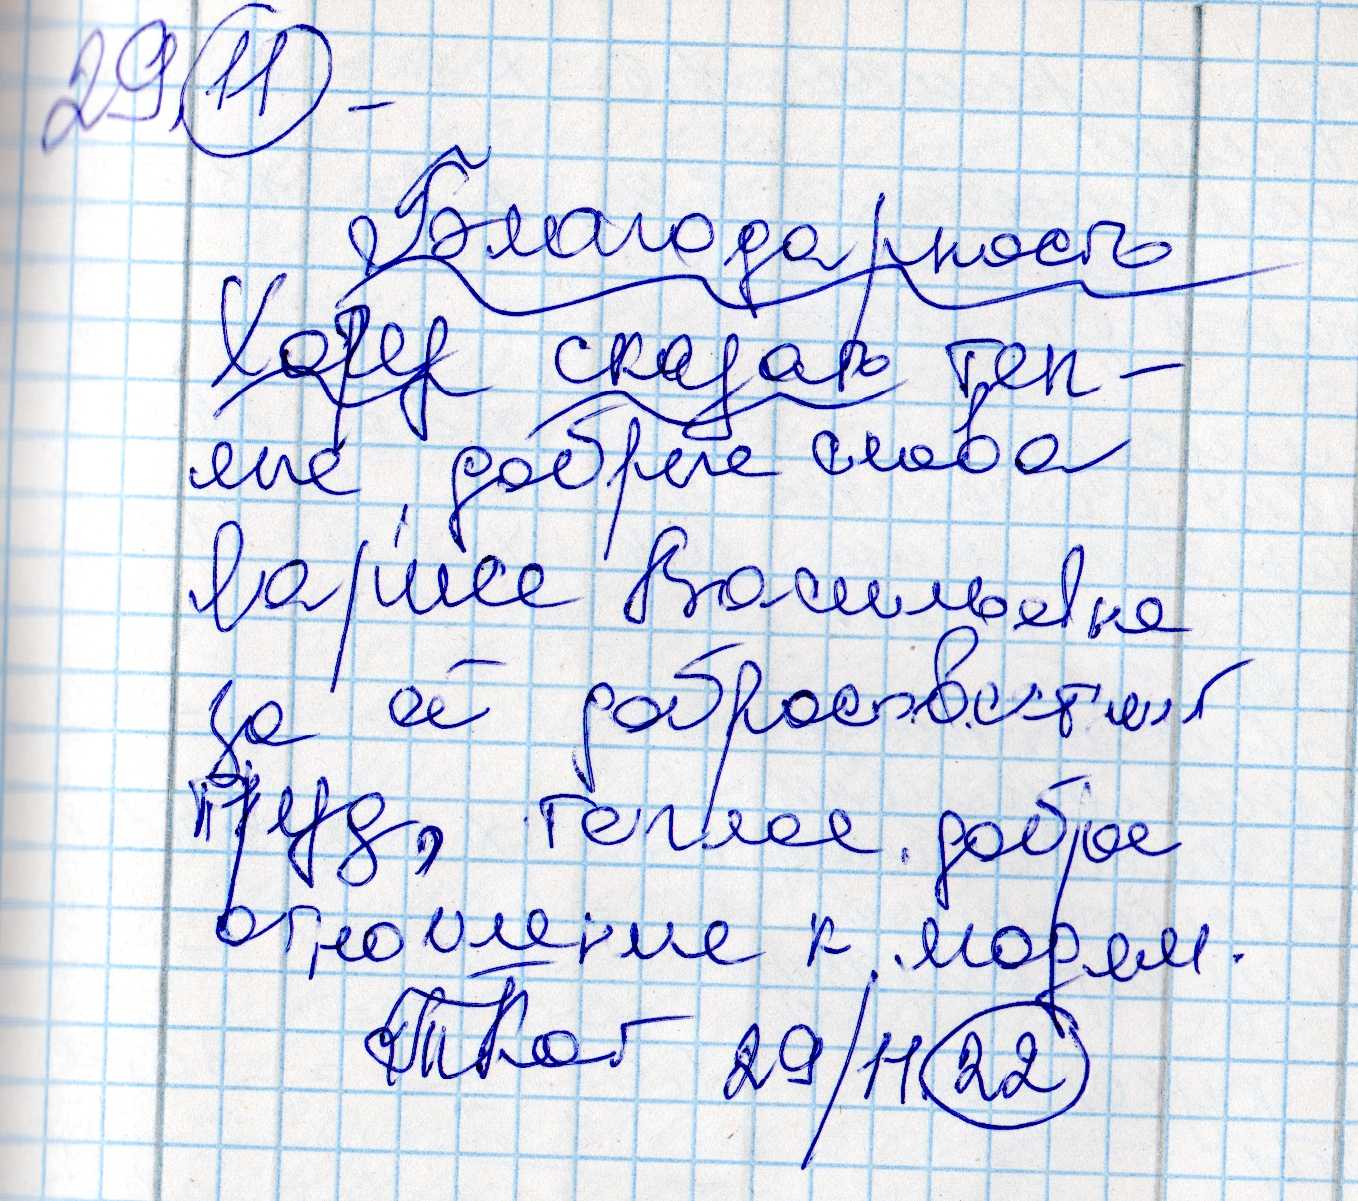 29.11 -
Благодарность
Хочу сказать теп-
лые, добрые слова
Ларисе Васильевне
за её добросовестный
труд, теплое, доброе
отношение к людям.
29/11.22